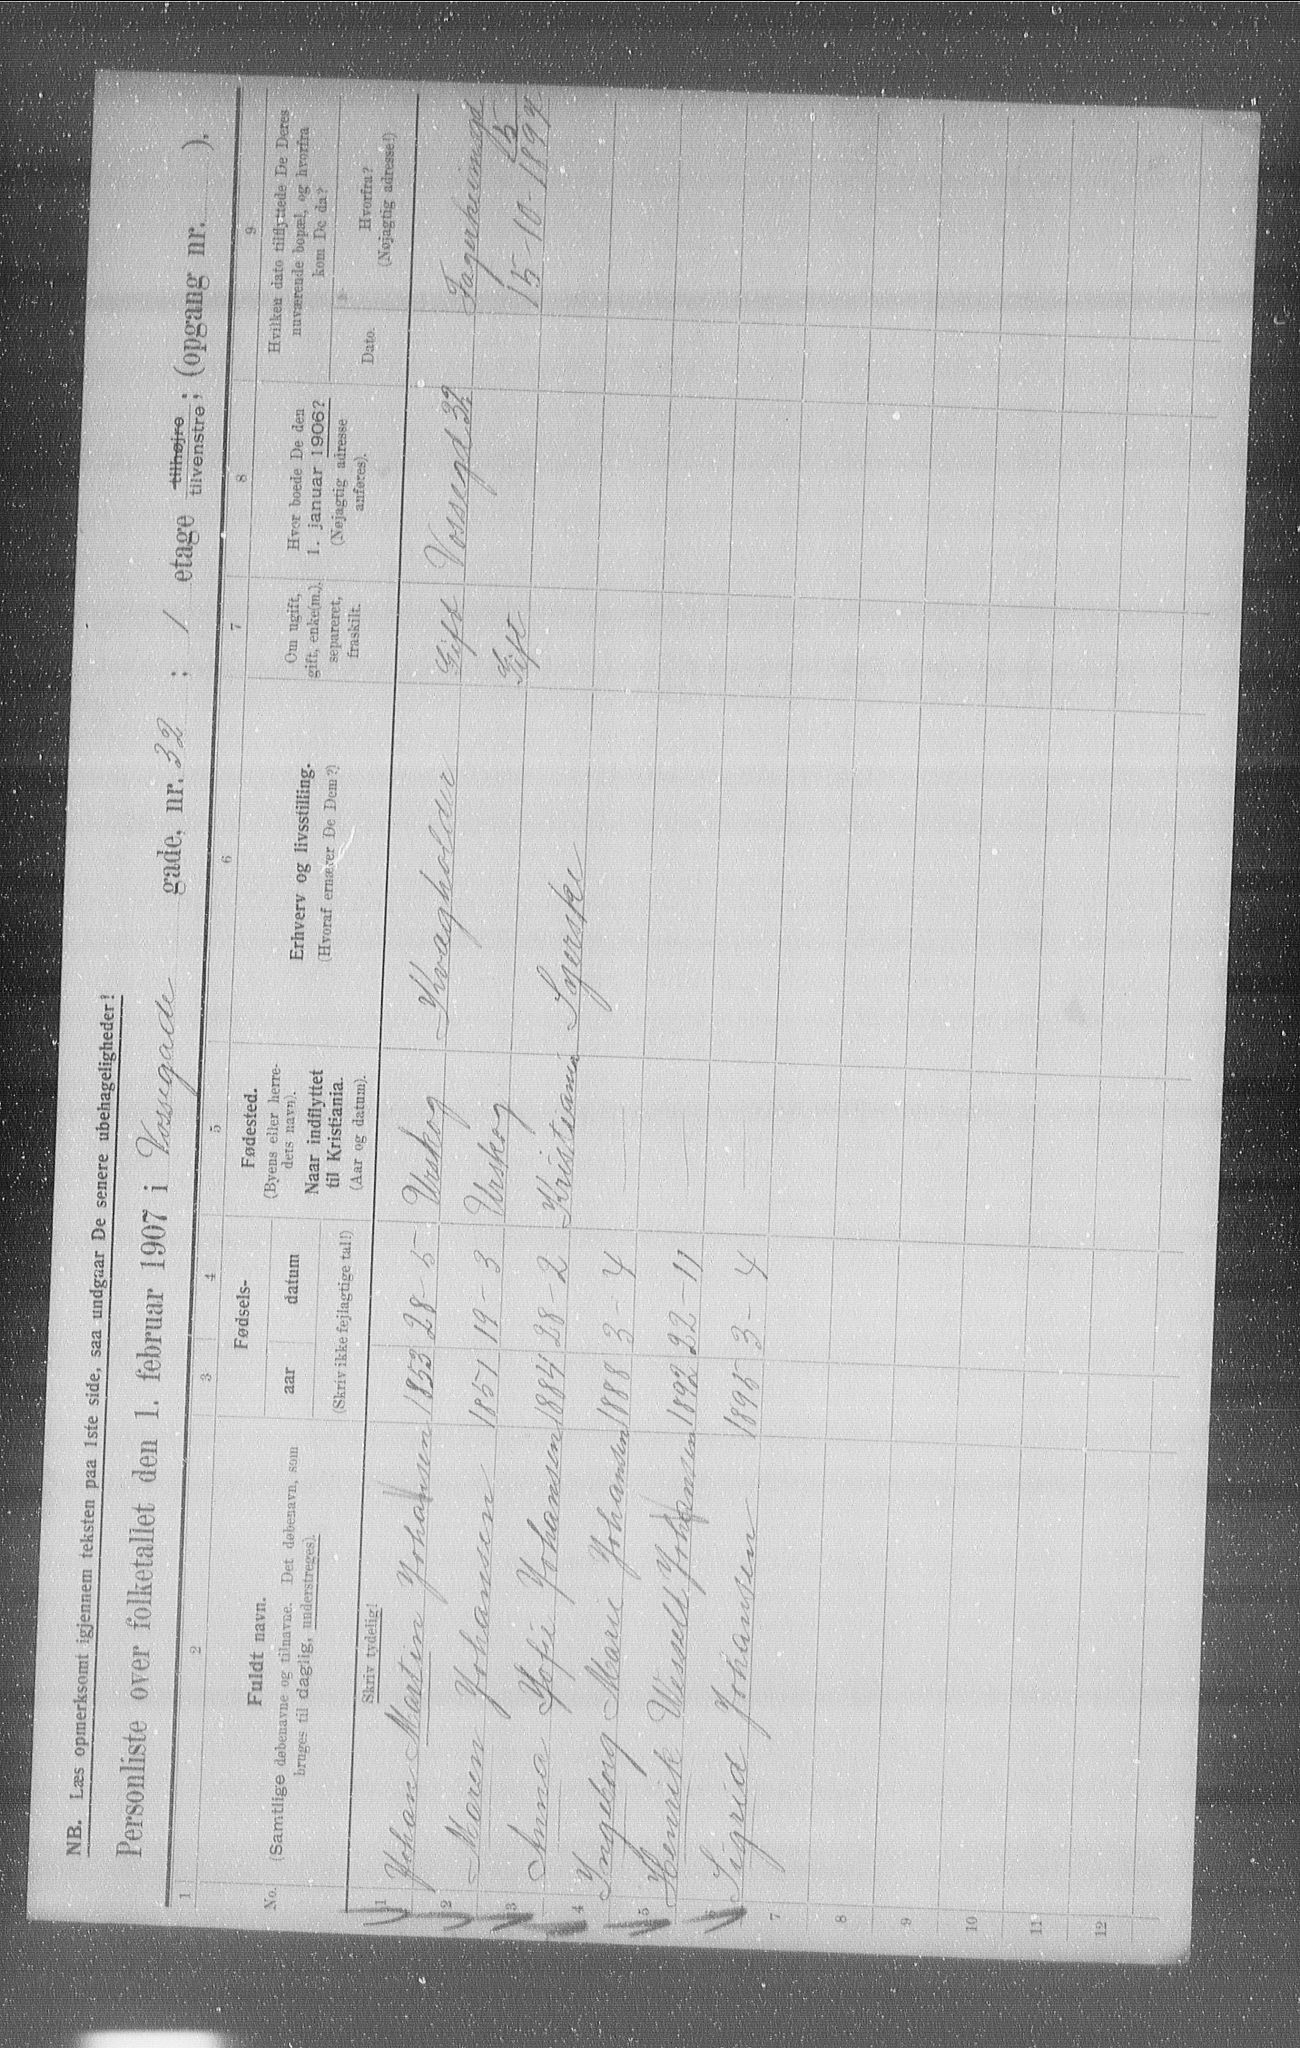 NB. Læs opmerksomt igjennem teksten paa 1ste side, saa undgaar De senere ubehageligheder!
Personliste over folketallet den 1. februar 1907 i Vossegade gade, nr. 32 ; 1 etage tilhøjre tilvenstre; (opgang nr. ).
1 2 3 4 5 6 7 8 9
No.
Fuldt navn.
(Samtlige døbenavne og tilnavne. Det døbenavn, som
bruges til daglig, understreges).
Skriv tydelig!
Fødsels-
aar datum
(Skriv ikke fejlagtige tal!)
Fødested.
(Byens eller herre-
dets navn).
Naar indflyttet
til Kristiania.
(Aar og datum).
Erhverv og livsstilling.
(Hvoraf ernærer De Dem?)
Om ugift,
gift, enke(m.),
separeret,
fraskilt.
Hvor boede De den
1. januar 1906?
(Nøjagtig adresse
anføres).
Hvilken dato tilflyttede De Deres
nuværende bopæl, og hvorfra
kom De da?
Dato.
Hvorfra?
(Nøjagtig adresse!)
1 Johan Martin Johansen 1853 28-5 Urskog Kvægholder Gift Vossegd 32
2 Maren Johansen 1851 19-3 Urskog Gift 15-10-1897
3 Anna Sofie Johansen 1884 28-2 Kristiania Syerske
4 Ingeborg Marie Johansen 1888 3-4
5 Henrik Wessel Johansen 1892 22 11
6 Sigrid Johansen 1895 3-4
7
8
9
10
11
12